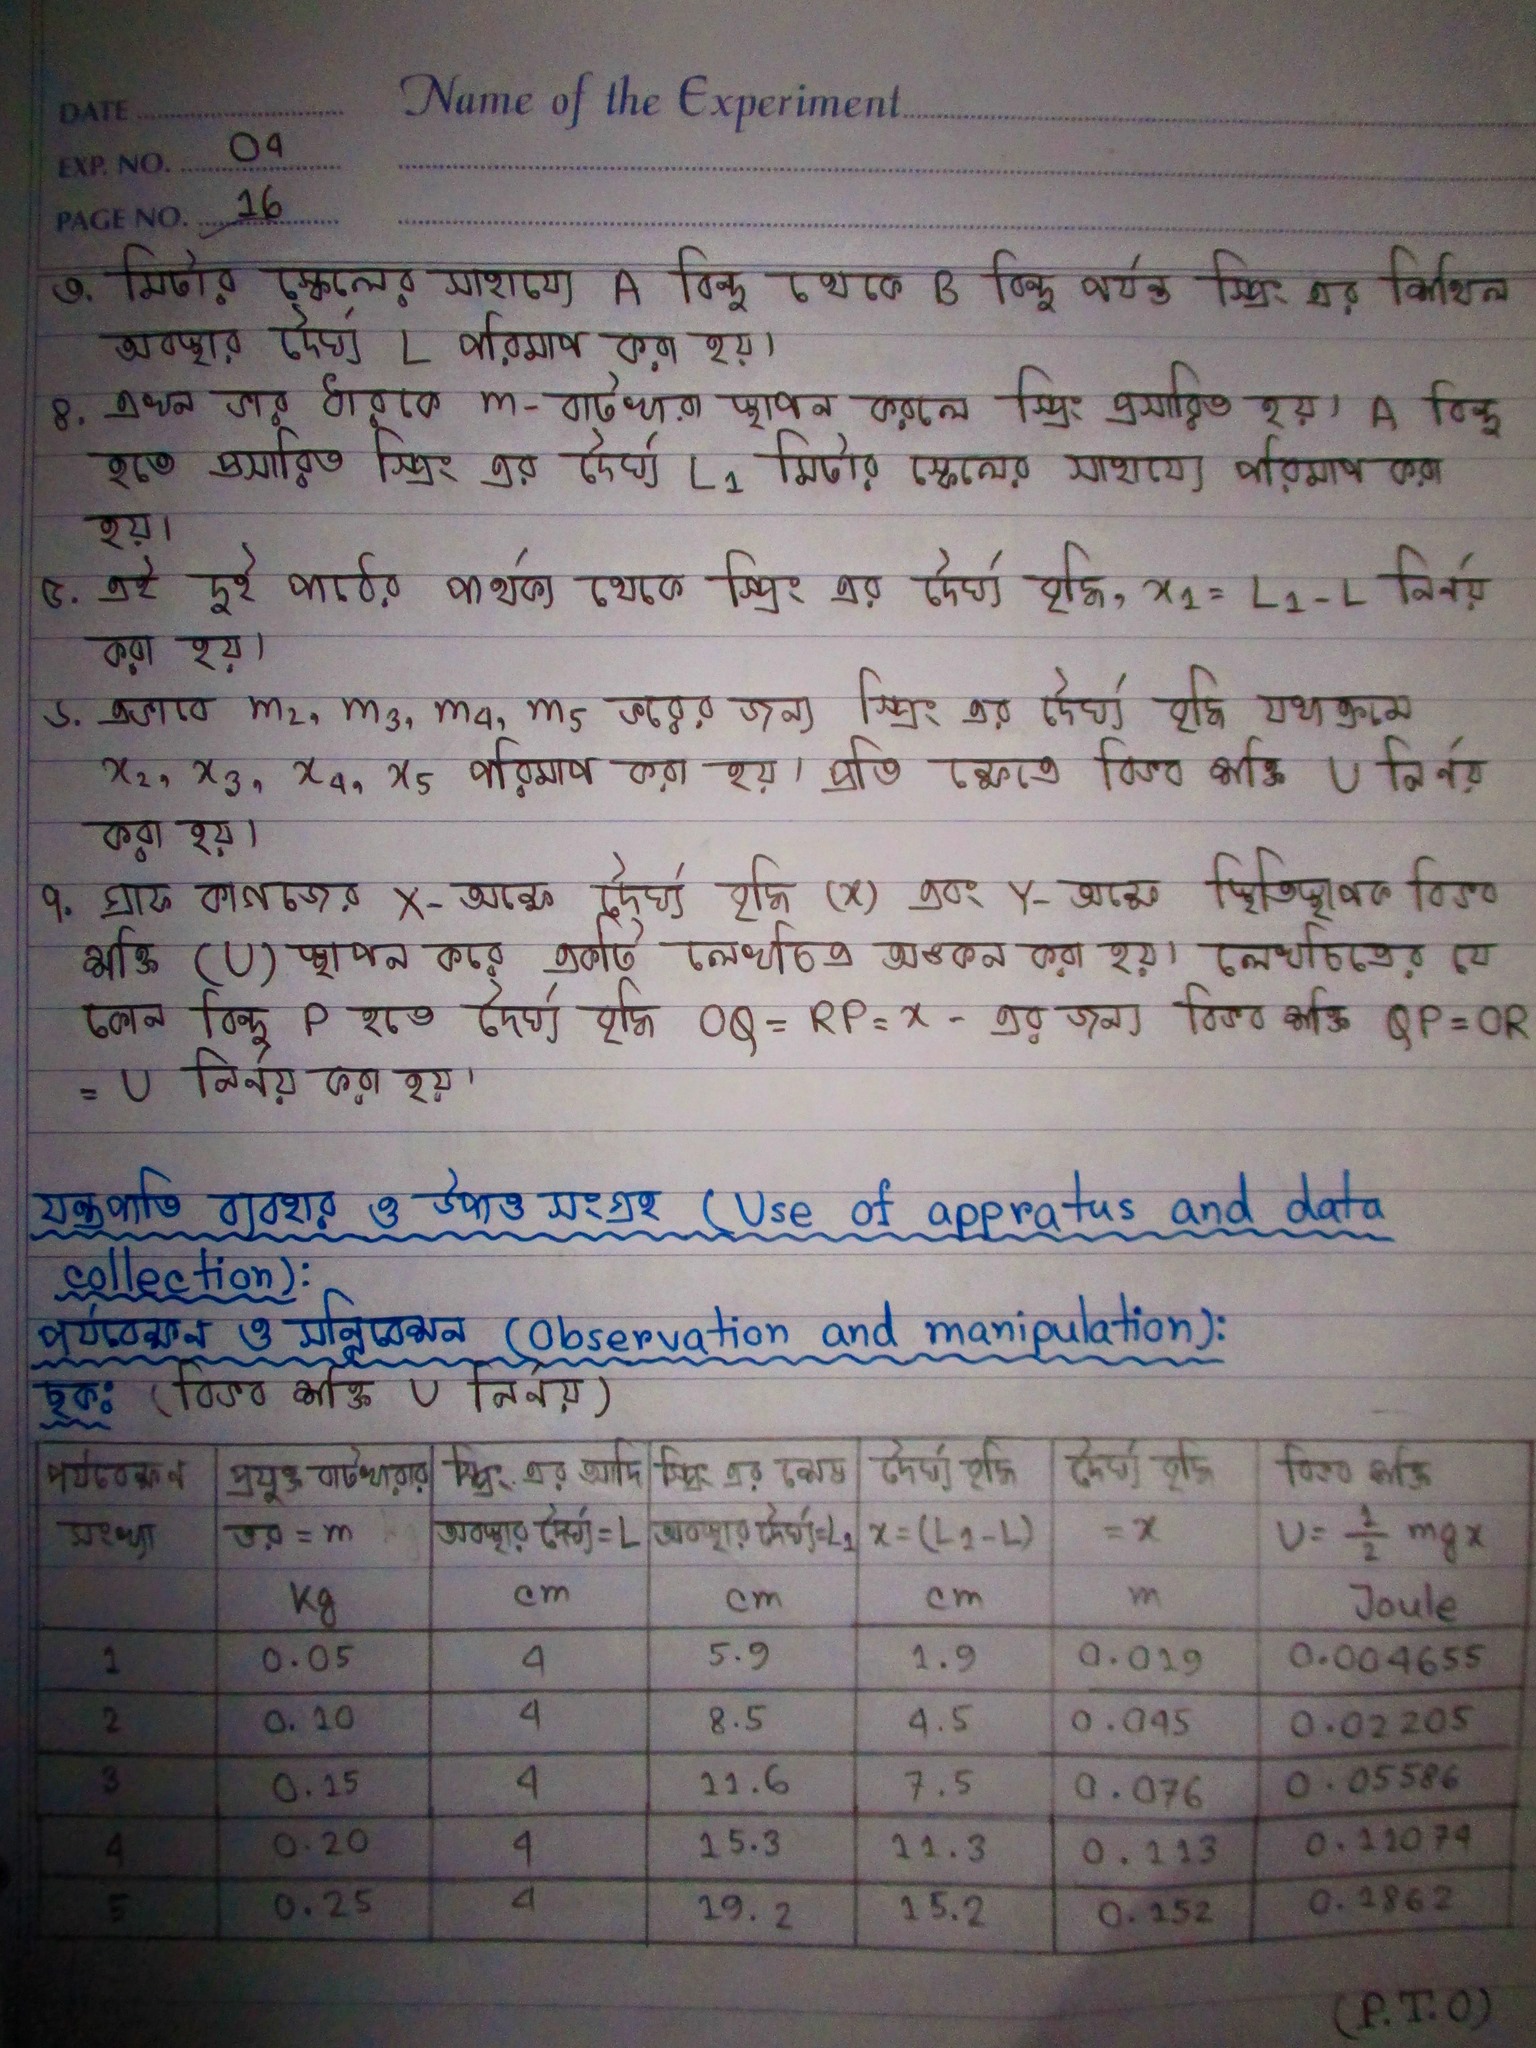 DATE
Name of the Experiment
EXP. NO. 04
PAGE NO. 16
৩. মিটার স্কেলের সাহায্যে A বিন্দু থেকে B বিন্দু পর্যন্ত স্প্রিং এর শিথিল
অবস্থার দৈর্ঘ্য L পরিমাপ করা হয়।
৪. এখন ভার ধারকে m- বাটখারা স্থাপন করলে স্প্রিং প্রসারিত হয়। A বিন্দু
হতে প্রসারিত স্প্রিং এর দৈর্ঘ্য L1 মিটার স্কেলের সাহায্যে পরিমাপ করা
হয়।
৫. এই দুই পাঠের পার্থক্য থেকে স্প্রিং এর দৈর্ঘ্য বৃদ্ধি, x1 = L1 - L নির্ণয়
করা হয়।
৬. এভাবে m2, m3, m4, m5 ভরের জন্য স্প্রিং এর দৈর্ঘ্য বৃদ্ধি যথাক্রমে
x2, x3, x4, x5 পরিমাপ করা হয়। প্রতি ক্ষেত্রে বিভব শক্তি U নির্ণয়
করা হয়।
৭. গ্রাফ কাগজের X- অক্ষে দৈর্ঘ্য বৃদ্ধি (x) এবং Y- অক্ষে স্থিতিস্থাপক বিভব
শক্তি (U) স্থাপন করে একটি লেখচিত্র অঙ্কন করা হয়। লেখচিত্রের যে
কোন বিন্দু P হতে দৈর্ঘ্য বৃদ্ধি OQ = RP = x - এর জন্য বিভব শক্তি QP = OR
= U নির্ণয় করা হয়।
যন্ত্রপাতি ব্যবহার ও উপাত্ত সংগ্রহ (Use of appratus and data
collection):
পর্যবেক্ষন ও সন্নিবেশন (Observation and manipulation):
ছক: (বিভব শক্তি U নির্ণয়)
পর্যবেক্ষন প্রযুক্ত বাটখারার স্প্রিং এর আদি স্প্রিং এর শেষ দৈর্ঘ্য বৃদ্ধি দৈর্ঘ্য বৃদ্ধি বিভব শক্তি
সংখ্যা ভর = m অবস্থার দৈর্ঘ্য = L অবস্থার দৈর্ঘ্য = L1 x = (L1 - L) = x U = 1/2 mgx
Kg cm cm cm m Joule
1 0.05 4 5.9 1.9 0.019 0.004655
2 0.10 4 8.5 4.5 0.045 0.02205
3 0.15 4 11.6 7.5 0.076 0.05586
4 0.20 4 15.3 11.3 0.113 0.11074
5 0.25 4 19.2 15.2 0.152 0.1862
(P.T.O)